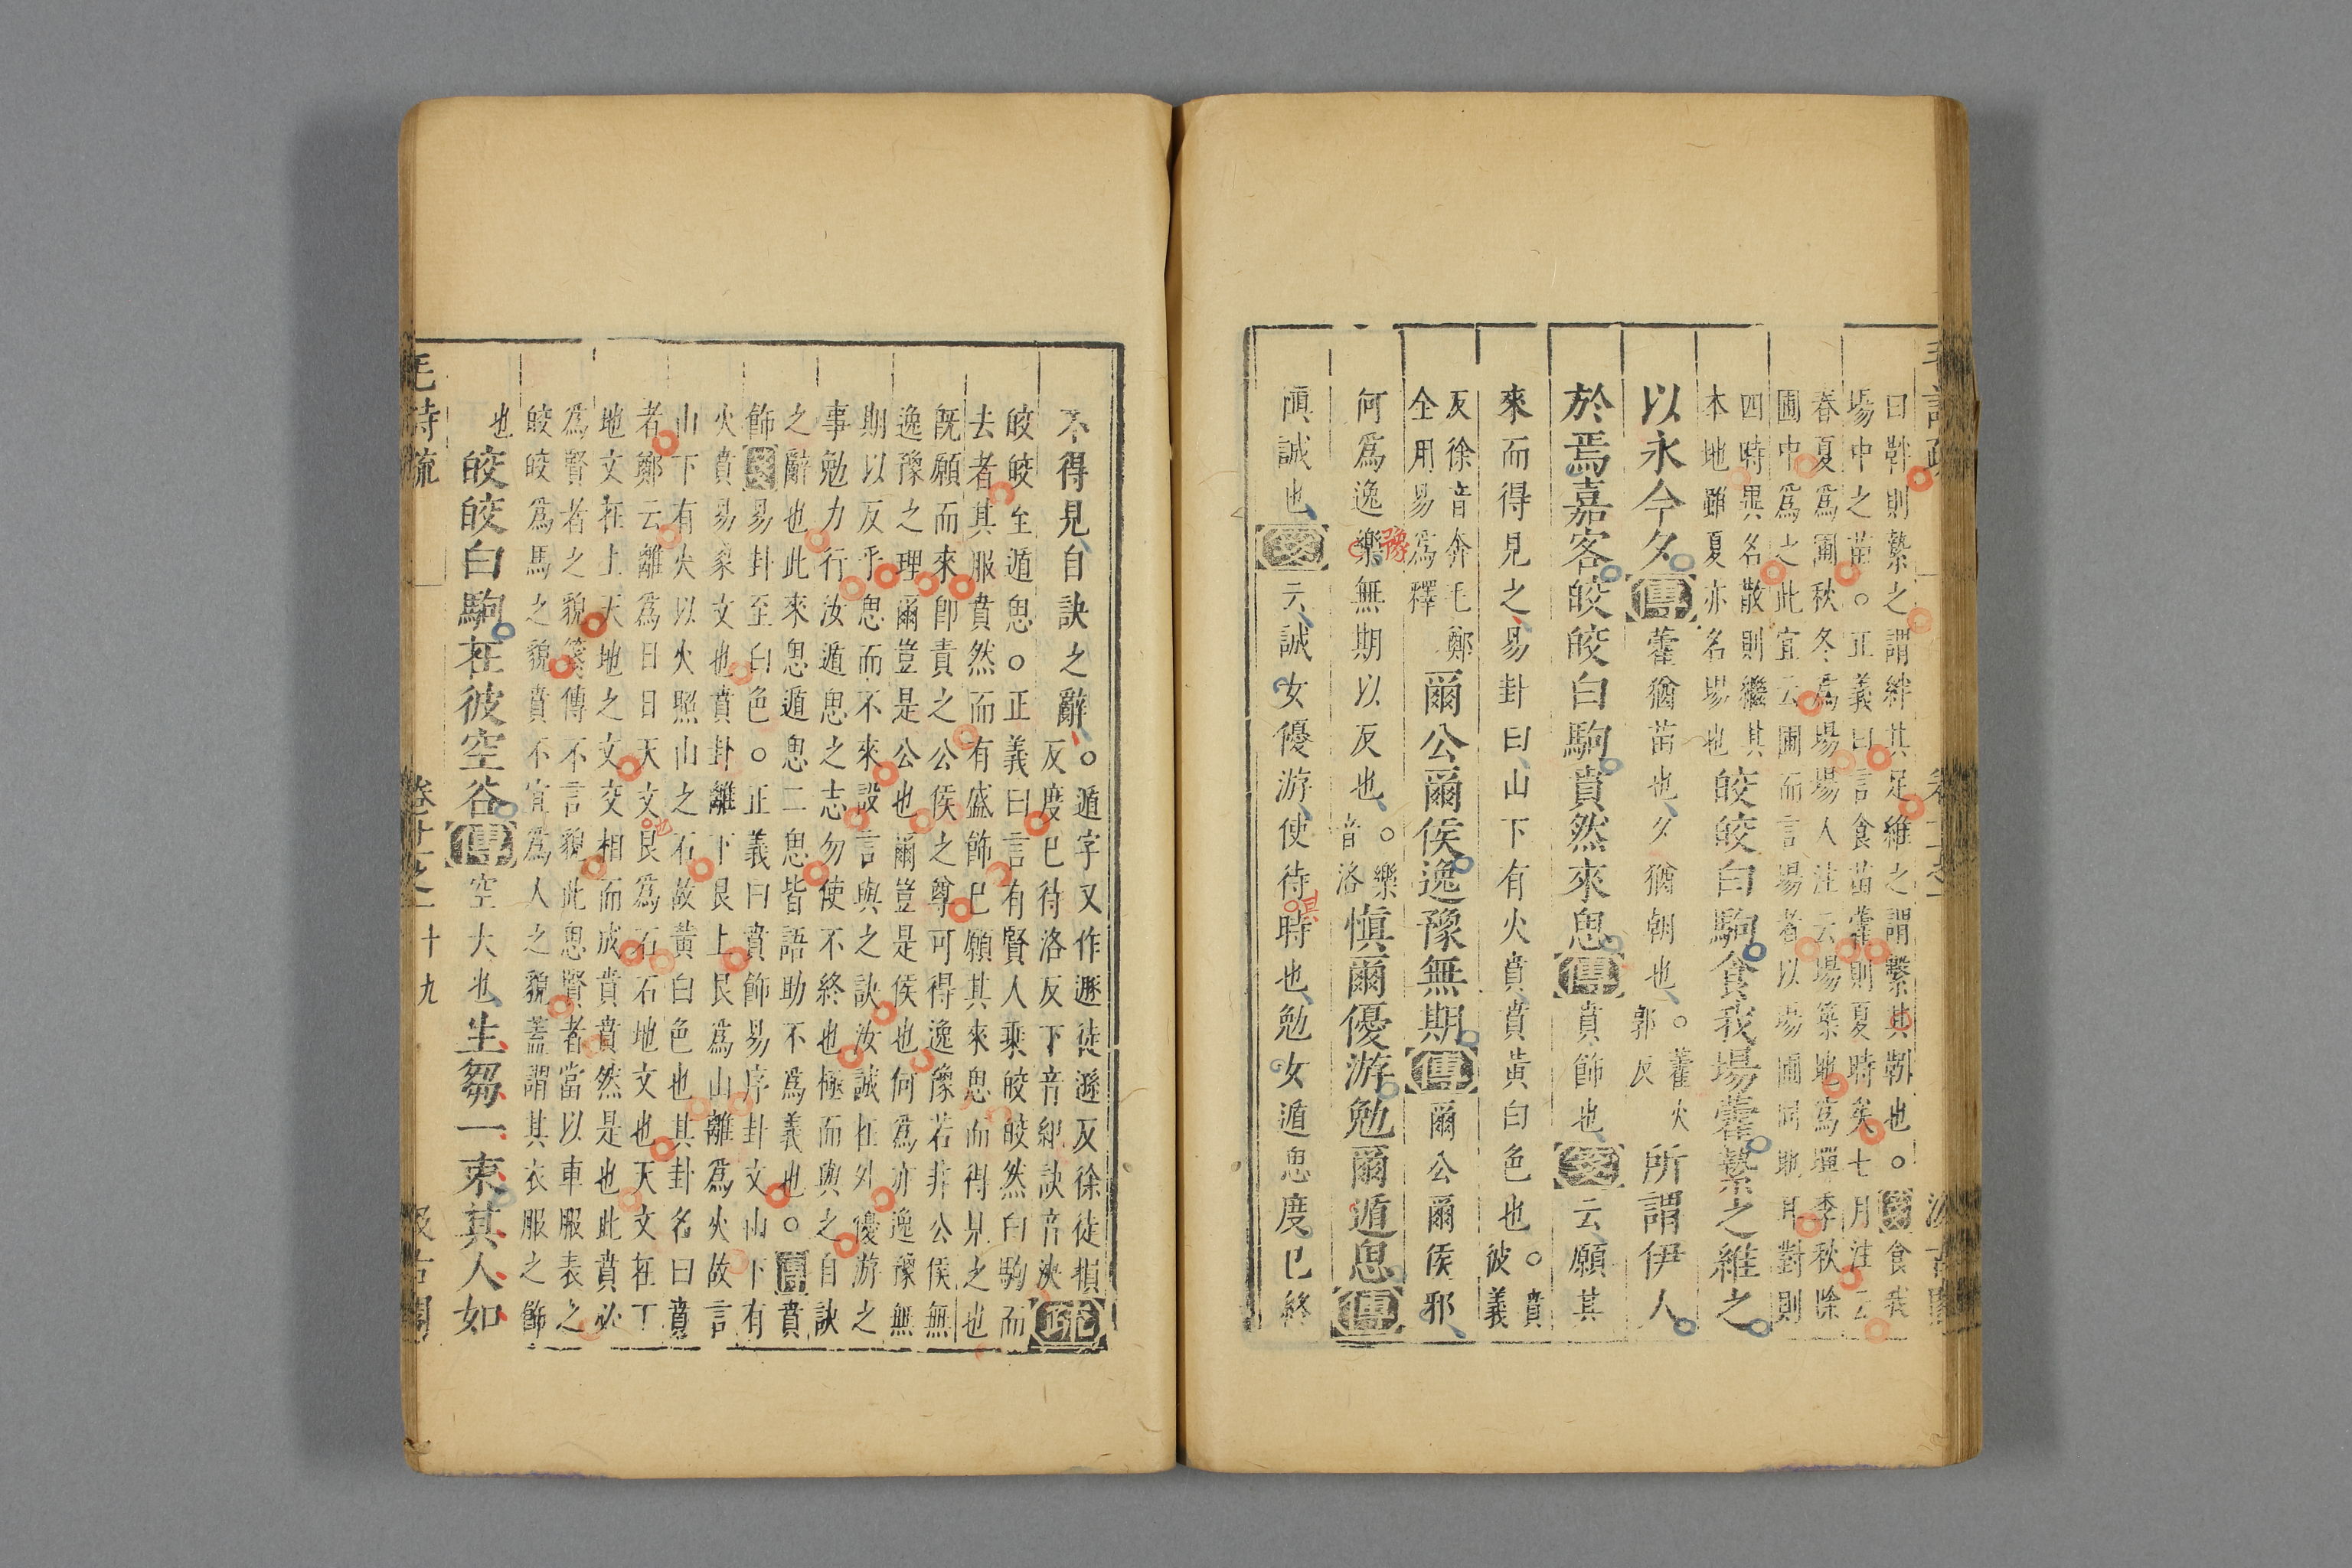 曰靷則縶之謂絆其足維之謂繫其靷也。箋食我
場中之苗。正義曰言食苗藿則夏時矣七月注云
春夏爲圃秋冬爲場場人注云場築地爲墠季秋除
圃中爲之此宜云圃而言場者以場圃同地耳對則
四時異名散則繼其
本地雖夏亦名場也
皎皎白駒食我場藿縶之維之
以永今夕傳藿猶苗也夕猶朝也。藿火郭反所謂伊人
於焉嘉客皎皎白駒賁然來思傳賁飾也箋云願其
來而得見之易卦曰山下有火賁賁黃白色也。賁彼義
反徐音奔毛鄭
全用易爲釋
爾公爾侯逸豫無期傳爾公爾侯邪
何爲逸樂無期以反也。樂音洛愼爾優游勉爾遁思傳
豫
愼誠也箋云誠女優游使待時也勉女遁思度已終
不得見自訣之辭。遁字又作遯徒遜反徐徒損
反度已待洛反下音紀訣音決疏
皎皎至遁思。正義曰言有賢人乘皎皎然白駒而
去者其服賁然而有盛飾已願其來思而得見之也
既願而來卽責之公侯之尊可得逸豫若非公侯無
逸豫之理爾豈是公也爾豈是侯也何爲亦逸豫無
期以反乎思而不來設言與之訣汝誠在外優游之
事勉力行汝遁思之志勿使不終也極而與之自訣
之辭也此來思遁思二思皆語助不爲義也。傳賁
飾箋易卦至白色。正義曰賁飾易序卦文山下有
火賁易彖文也賁卦離下艮上艮爲山離爲火故言
山下有火以火照山之石故黃白色也其卦名曰賁
者鄭云離爲日日天文艮爲石石地文也天文在丁
地文在上天地之文交相而成賁賁然是也此賁必
爲賢者之貌箋傳不言貌此思賢者當以車服表之
皎皎爲馬之貌賁不宜爲人之貌蓋謂其衣服之飾
也
皎皎白駒在彼空谷傳空大也生芻一束其人如
毛詩疏
卷十一之一
十九
汲古閣